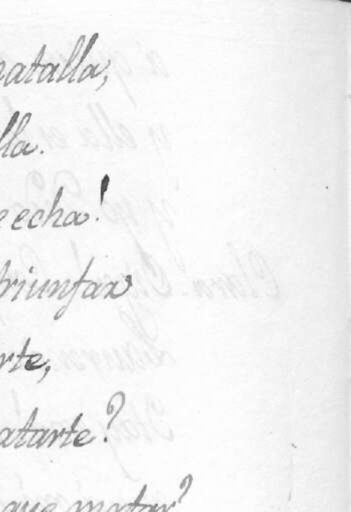 atalla,
lla.
e echa!
triunfar
rte,
atarte?
que matar?